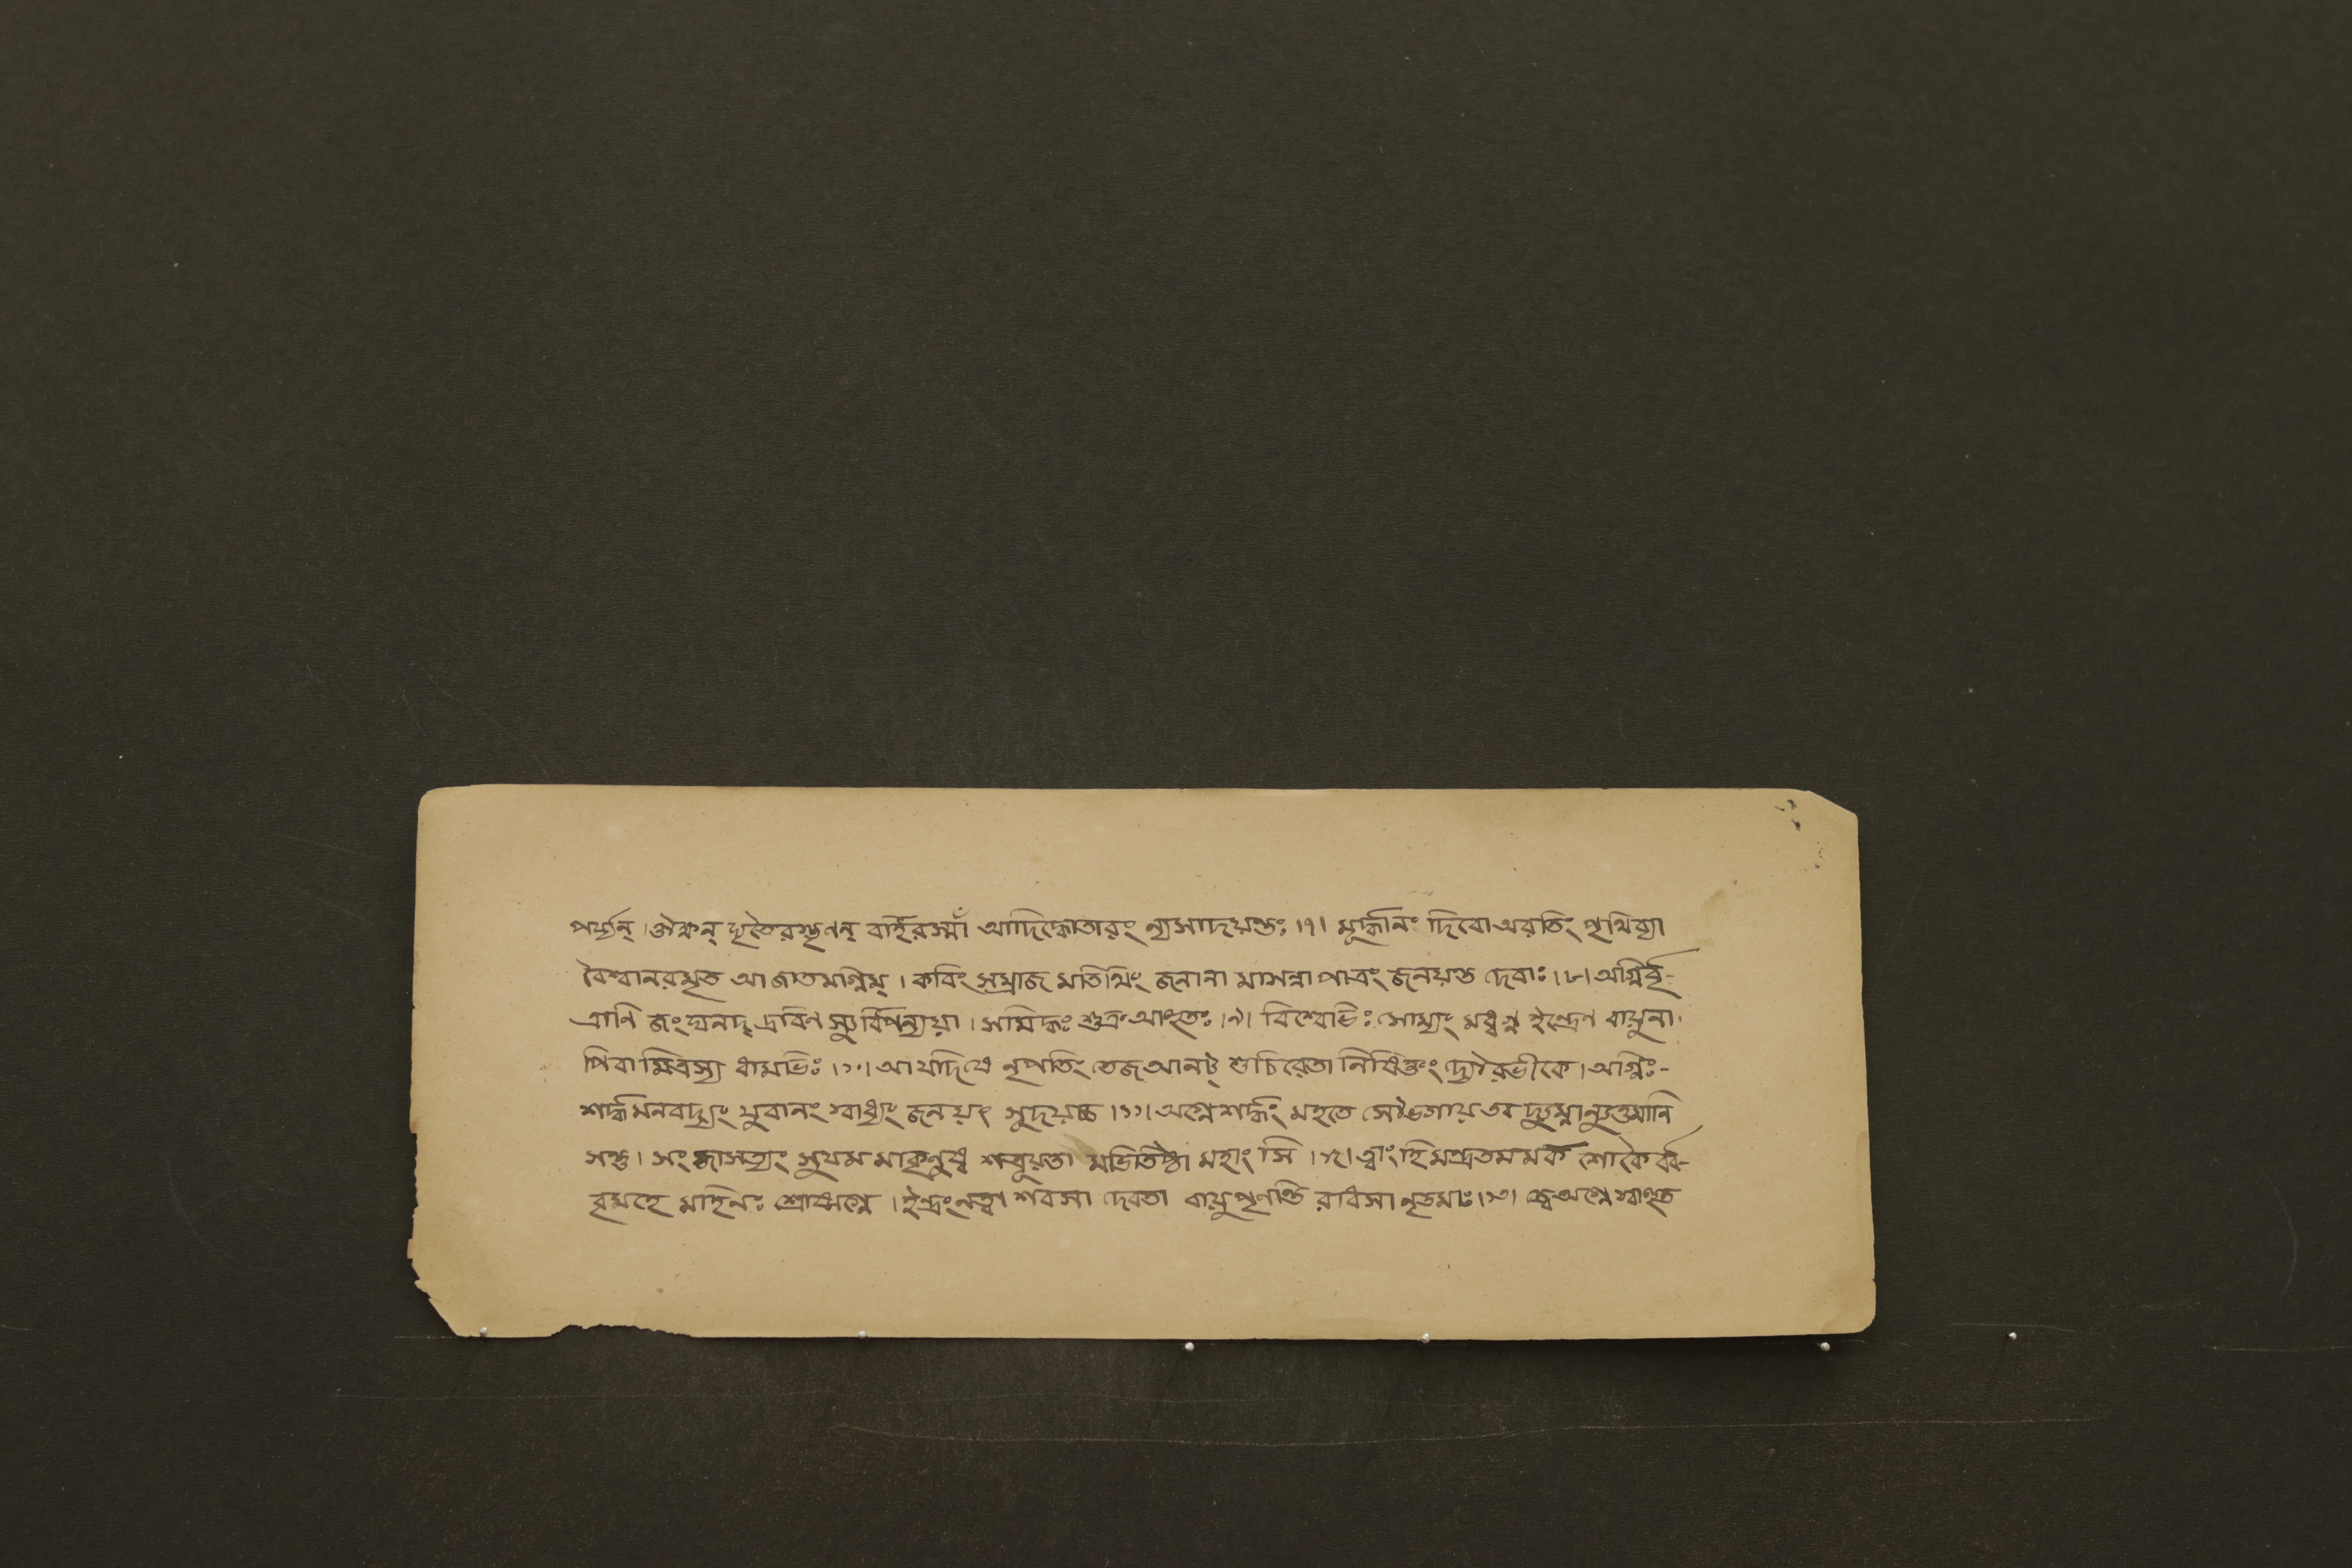 পর্য্যন্ । ঔক্ষন্ ঘৃতৈরস্তৃণন্ বর্হিরস্মাঁ আদিদ্ধোতারং ন্যসাদয়ন্তঃ ।৭। মূর্দ্ধানং দিবো অরতিং পৃথিব্যা
বৈশ্বানরমৃত আ জাতমাগ্নিম্ । কবিং সম্রাজ মতিথিং জনানা মাসন্না পাত্রং জনয়ন্ত দেবাঃ ।৮। অগ্নির্বৃ-
ত্রাণি জংঘনদ্ দ্রবিণ স্যুর্বিপন্যয়া । সমিদ্ধঃ শুক্র আহুতঃ ।৯। বিশ্বেভিঃ সোম্যং মধ্বগ্ন ইন্দ্রেণ বায়ুনা ।
পিবা মিত্রস্য ধামভিঃ ।১০। আ যদিষে নৃপতিং তেজ আনট্ শুচি রেতা নিষিক্তং দ্যৌরভীকে । অগ্নিঃ-
শর্দ্ধমনবদ্যং যুবানং স্বাধ্যং জনয়ৎ সুদয়চ্চ ।১১। অগ্নে শর্দ্ধং মহতে সৌভগায় তব দ্যুম্নান্যুত্তমানি
সন্তু । সং জাসত্যং সুযম মাকৃনুষ্ব শত্রূয়তা মভিতিষ্ঠা মহাংসি ।১২। ত্বাং হি মন্দ্রতমমর্ক শোকৈর্বব-
বৃমহে মহিনঃ শ্রোষ্যগ্নে । ইন্দ্রং নত্বা শবসা দেবতা বায়ু পৃণন্তি রাধসা নৃতমাঃ ।১৩। ত্বে অগ্নে স্বাহুত